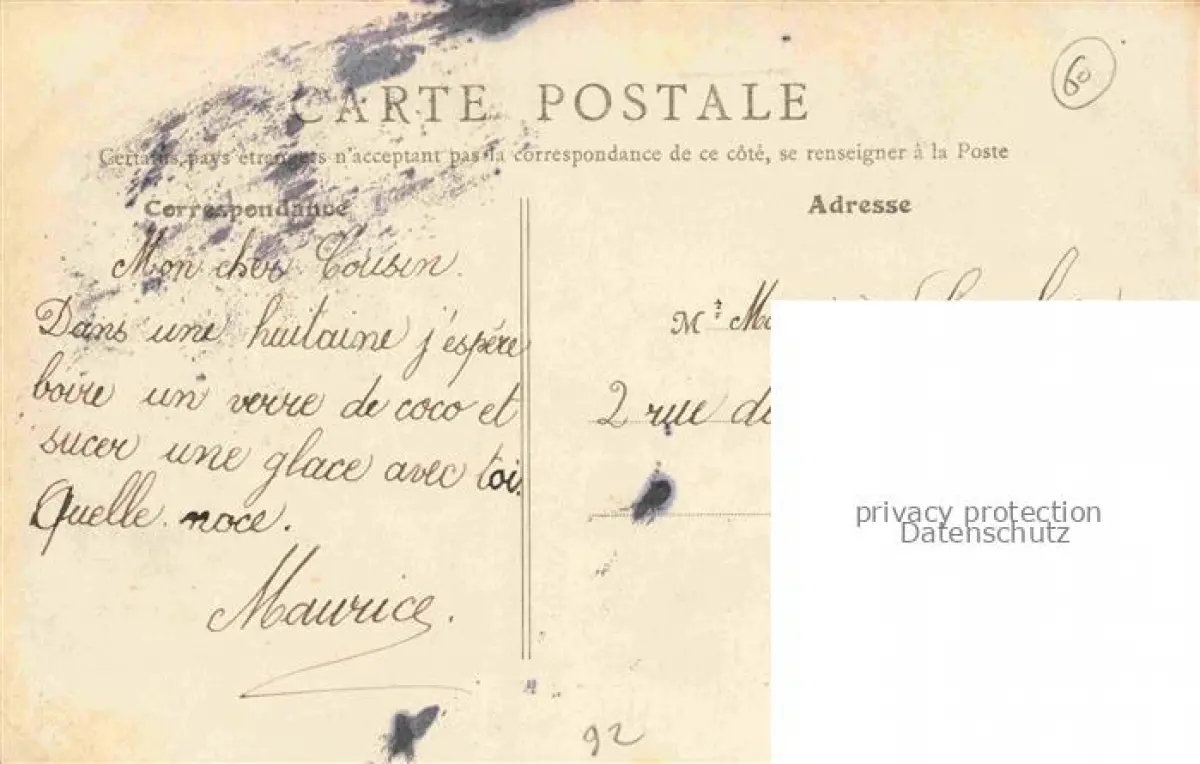 60
CARTE POSTALE
Certains pays étrangers n'acceptant pas la correspondance de ce côté, se renseigner à la Poste
Correspondance
Mon cher Cousin.
Dans une huitaine j'espère
boire un verre de coco et
sucer une glace avec toi.
Quelle noce.
Maurice.
Adresse
Mr
2 rue de
privacy protection
Datenschutz
92